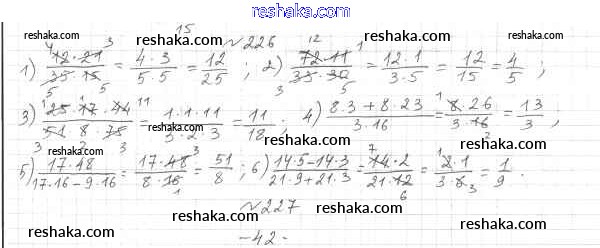 www.reshaka.com
№226
1) 12·21/35·15 = 4·3/5·5 = 12/25 ; 2) 72·11/33·30 = 12·1/3·5 = 12/15 = 4/5 ;
3) 25·17·44/51·8·75 = 1·1·11/3·2·3 = 11/18 ; 4) 8·3+8·23/3·16 = 8·26/3·16 = 13/3 ;
5) 17·48/17·16-9·16 = 17·48/8·16 = 51/8 ; 6) 14·5-14·3/21·9+21·3 = 14·2/21·12 = 2·1/3·6 = 1/9 .
№227
-42-
reshaka.com
reshaka.com
reshaka.com
reshaka.com
reshaka.com
reshaka.com
reshaka.com
reshaka.com
reshaka.com
reshaka.com
reshaka.com
reshaka.com
www.reshaka.com